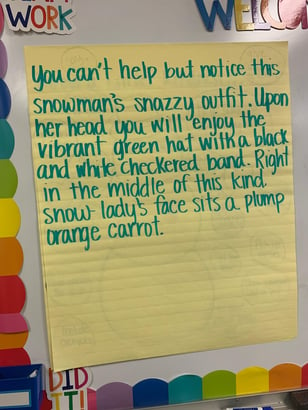 TEAM
WORK
WELCO
You can't help but notice this
snowman's snazzy outfit. Upon
her head you will enjoy the
vibrant green hat with a black
and white checkered band. Right
in the middle of this kind
snow lady's face sits a plump
orange carrot.
DID
IT!